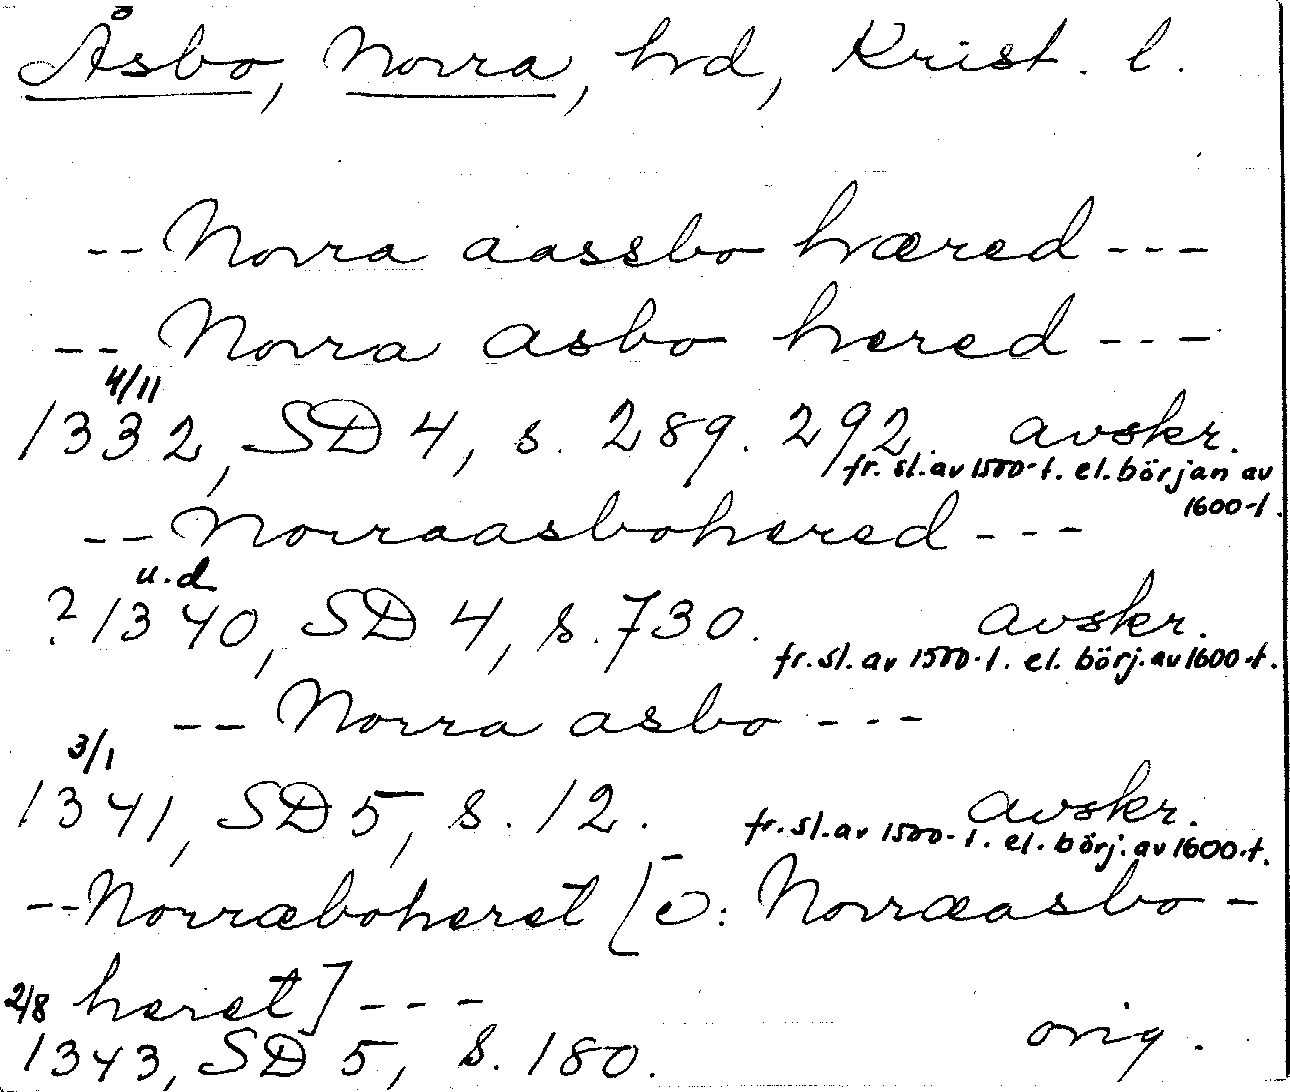 Åsbo, Norra, hd, Krist. l.
-- Norra aassbo hæred ---
-- Norra asbo hered ---
4/11
1332, SD 4, s. 289. 292. avskr.
fr. sl. av 1500-t. el. början av
1600-t.
-- Norraasbohered ---
u.d
? 1340, SD 4, s. 730. avskr.
fr. sl. av 1500-t. el. börj. av 1600-t.
-- Norra asbo ---
3/1
1341, SD 5, s. 12. avskr.
fr. sl. av 1500-t. el. börj. av 1600-t.
-- Norræboheret [ɔ: Norræasbo-
2/8 heret] ---
1343, SD 5, s. 180. orig.